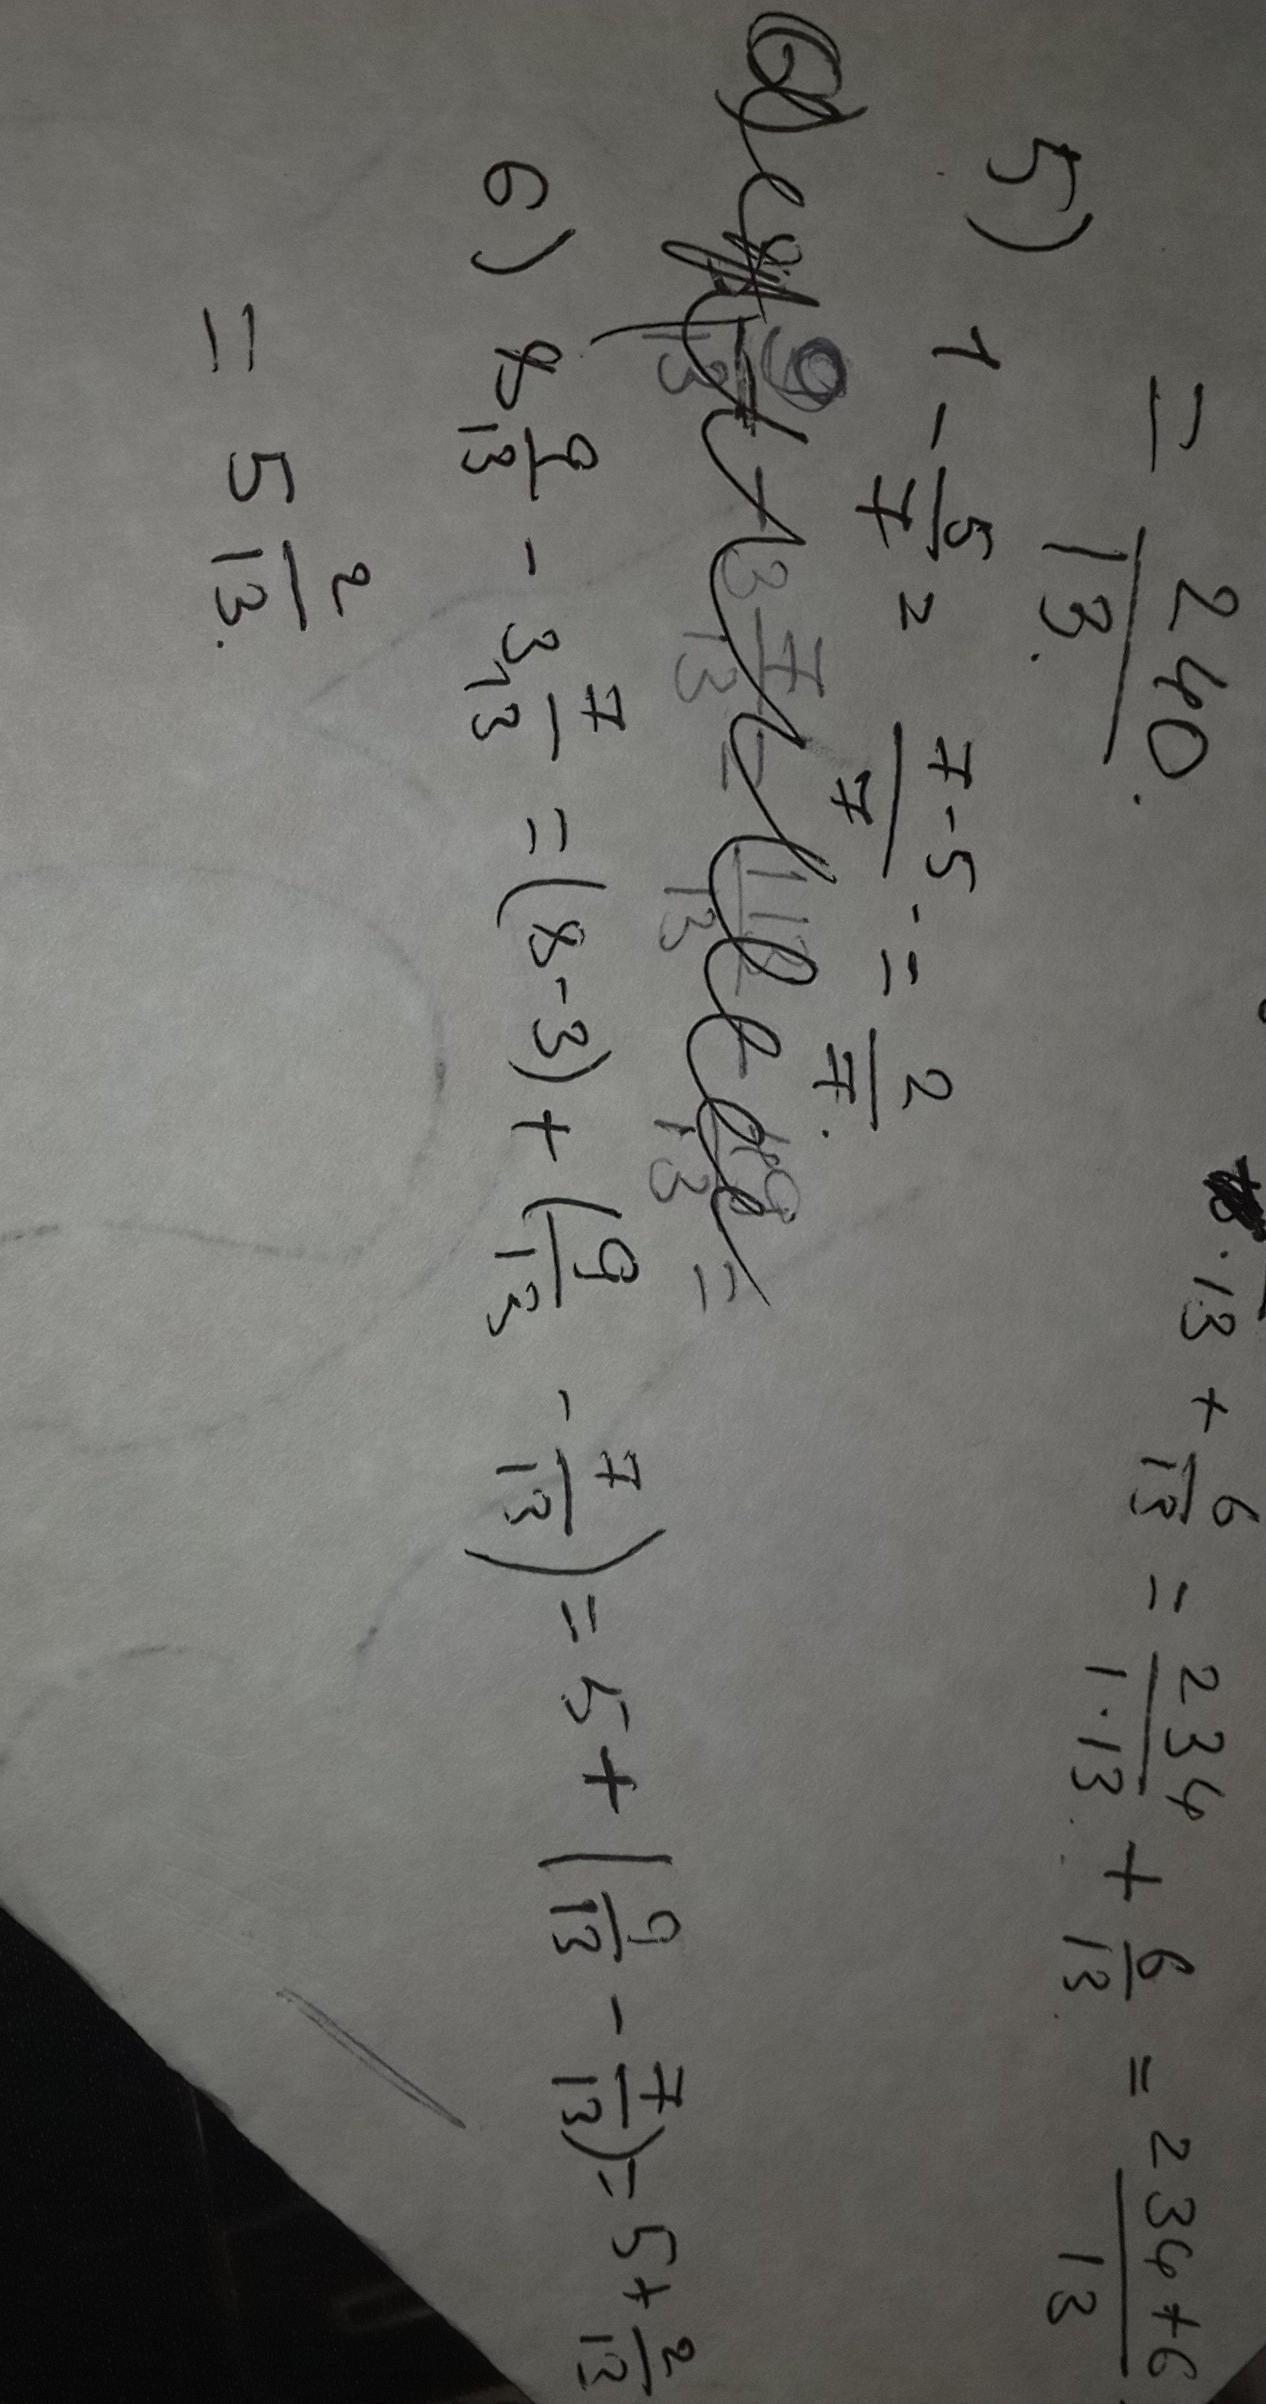 · 13 + 6/13 = 234/1·13 + 6/13 = 234+6/13
= 240/13.
5) 1 - 5/7 = 7-5/7 = 2/7.
6) 8 9/13 - 3 7/13 = (8-3) + (9/13 - 7/13) = 5 + (9/13 - 7/13) = 5 + 2/13
= 5 2/13.